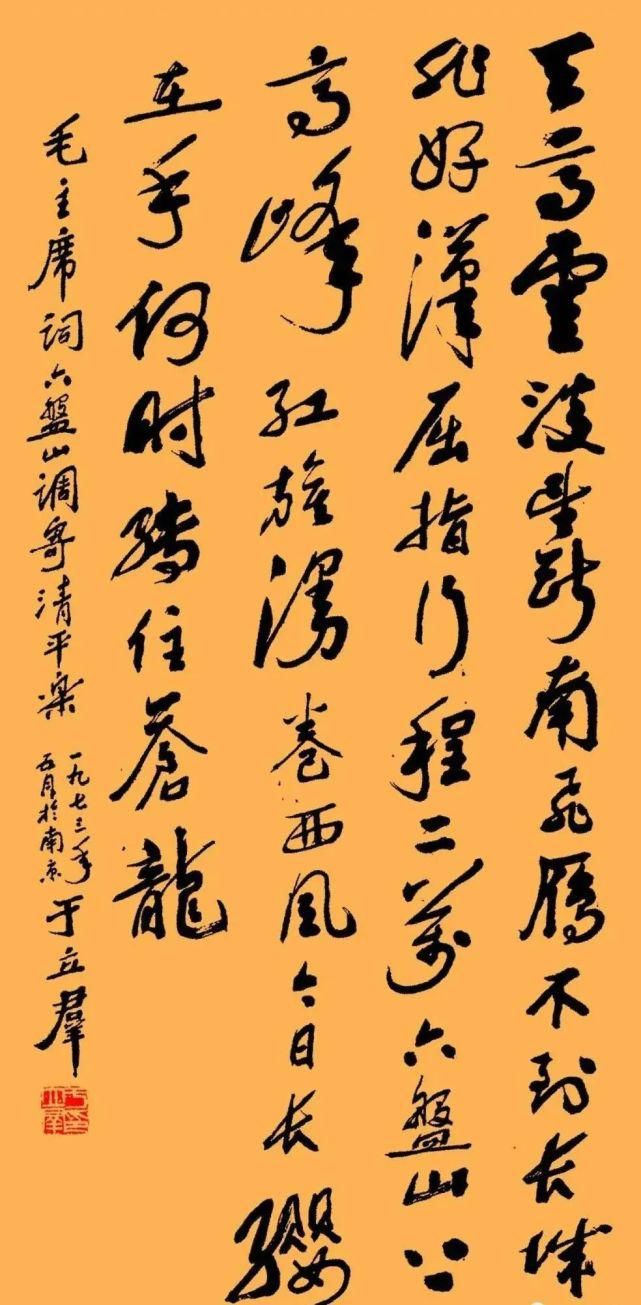 天高雲淡望斷南飛雁不到长城
非好漢屈指行程二萬六盤山上
高峰红旗漫卷西风今日长缨
在手何时缚住蒼龍
毛主席词六盤山调寄清平樂
一九七三年
五月於南京
于立群